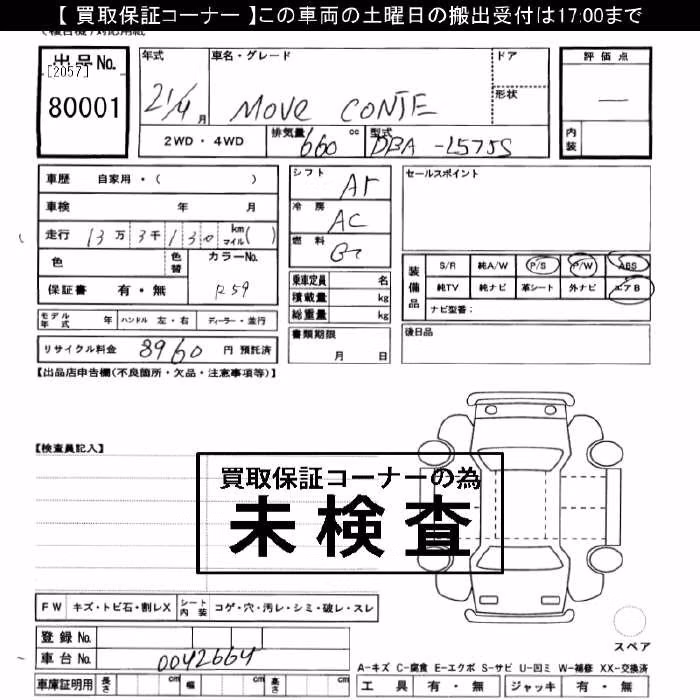 【 買取保証コーナー 】この車両の土曜日の搬出受付は17:00まで
出品No.
[2057]
80001
年式
21/4 月
車名・グレード
MOVE CONTE
ドア
形状
評価点
―
内装
2WD・4WD
排気量 660 cc
型式 DBA-L575S
車歴 自家用・( )
車検 年 月
走行 13万3千130 km マイル( )
色
色替
カラーNo.
R59
保証書 有・無
シフト AT
冷房 AC
燃料
乗車定員 名
積載量 kg
総重量 kg
書類期限
月 日
セールスポイント
装備品
S/R 純A/W P/S P/W ABS
純TV 純ナビ 革シート 外ナビ エアB
ナビ型番:
後日品
モデル年式 年 ハンドル 左・右 ディーラー・並行
リサイクル料金 8960 円 預託済
【出品店申告欄(不良箇所・欠品・注意事項等)】
【検査員記入】
買取保証コーナーの為
未検査
FW キズ・トビ石・割レX シート内装 コゲ・穴・汚レ・シミ・破レ・スレ
スペア
登録No.
車台No. 0042664
A-キズ C-腐食 E-エクボ S-サビ U-凹ミ W-補修 XX-交換済
車庫証明用 長さ cm 幅 cm 高さ cm
工具 有・無 ジャッキ 有・無